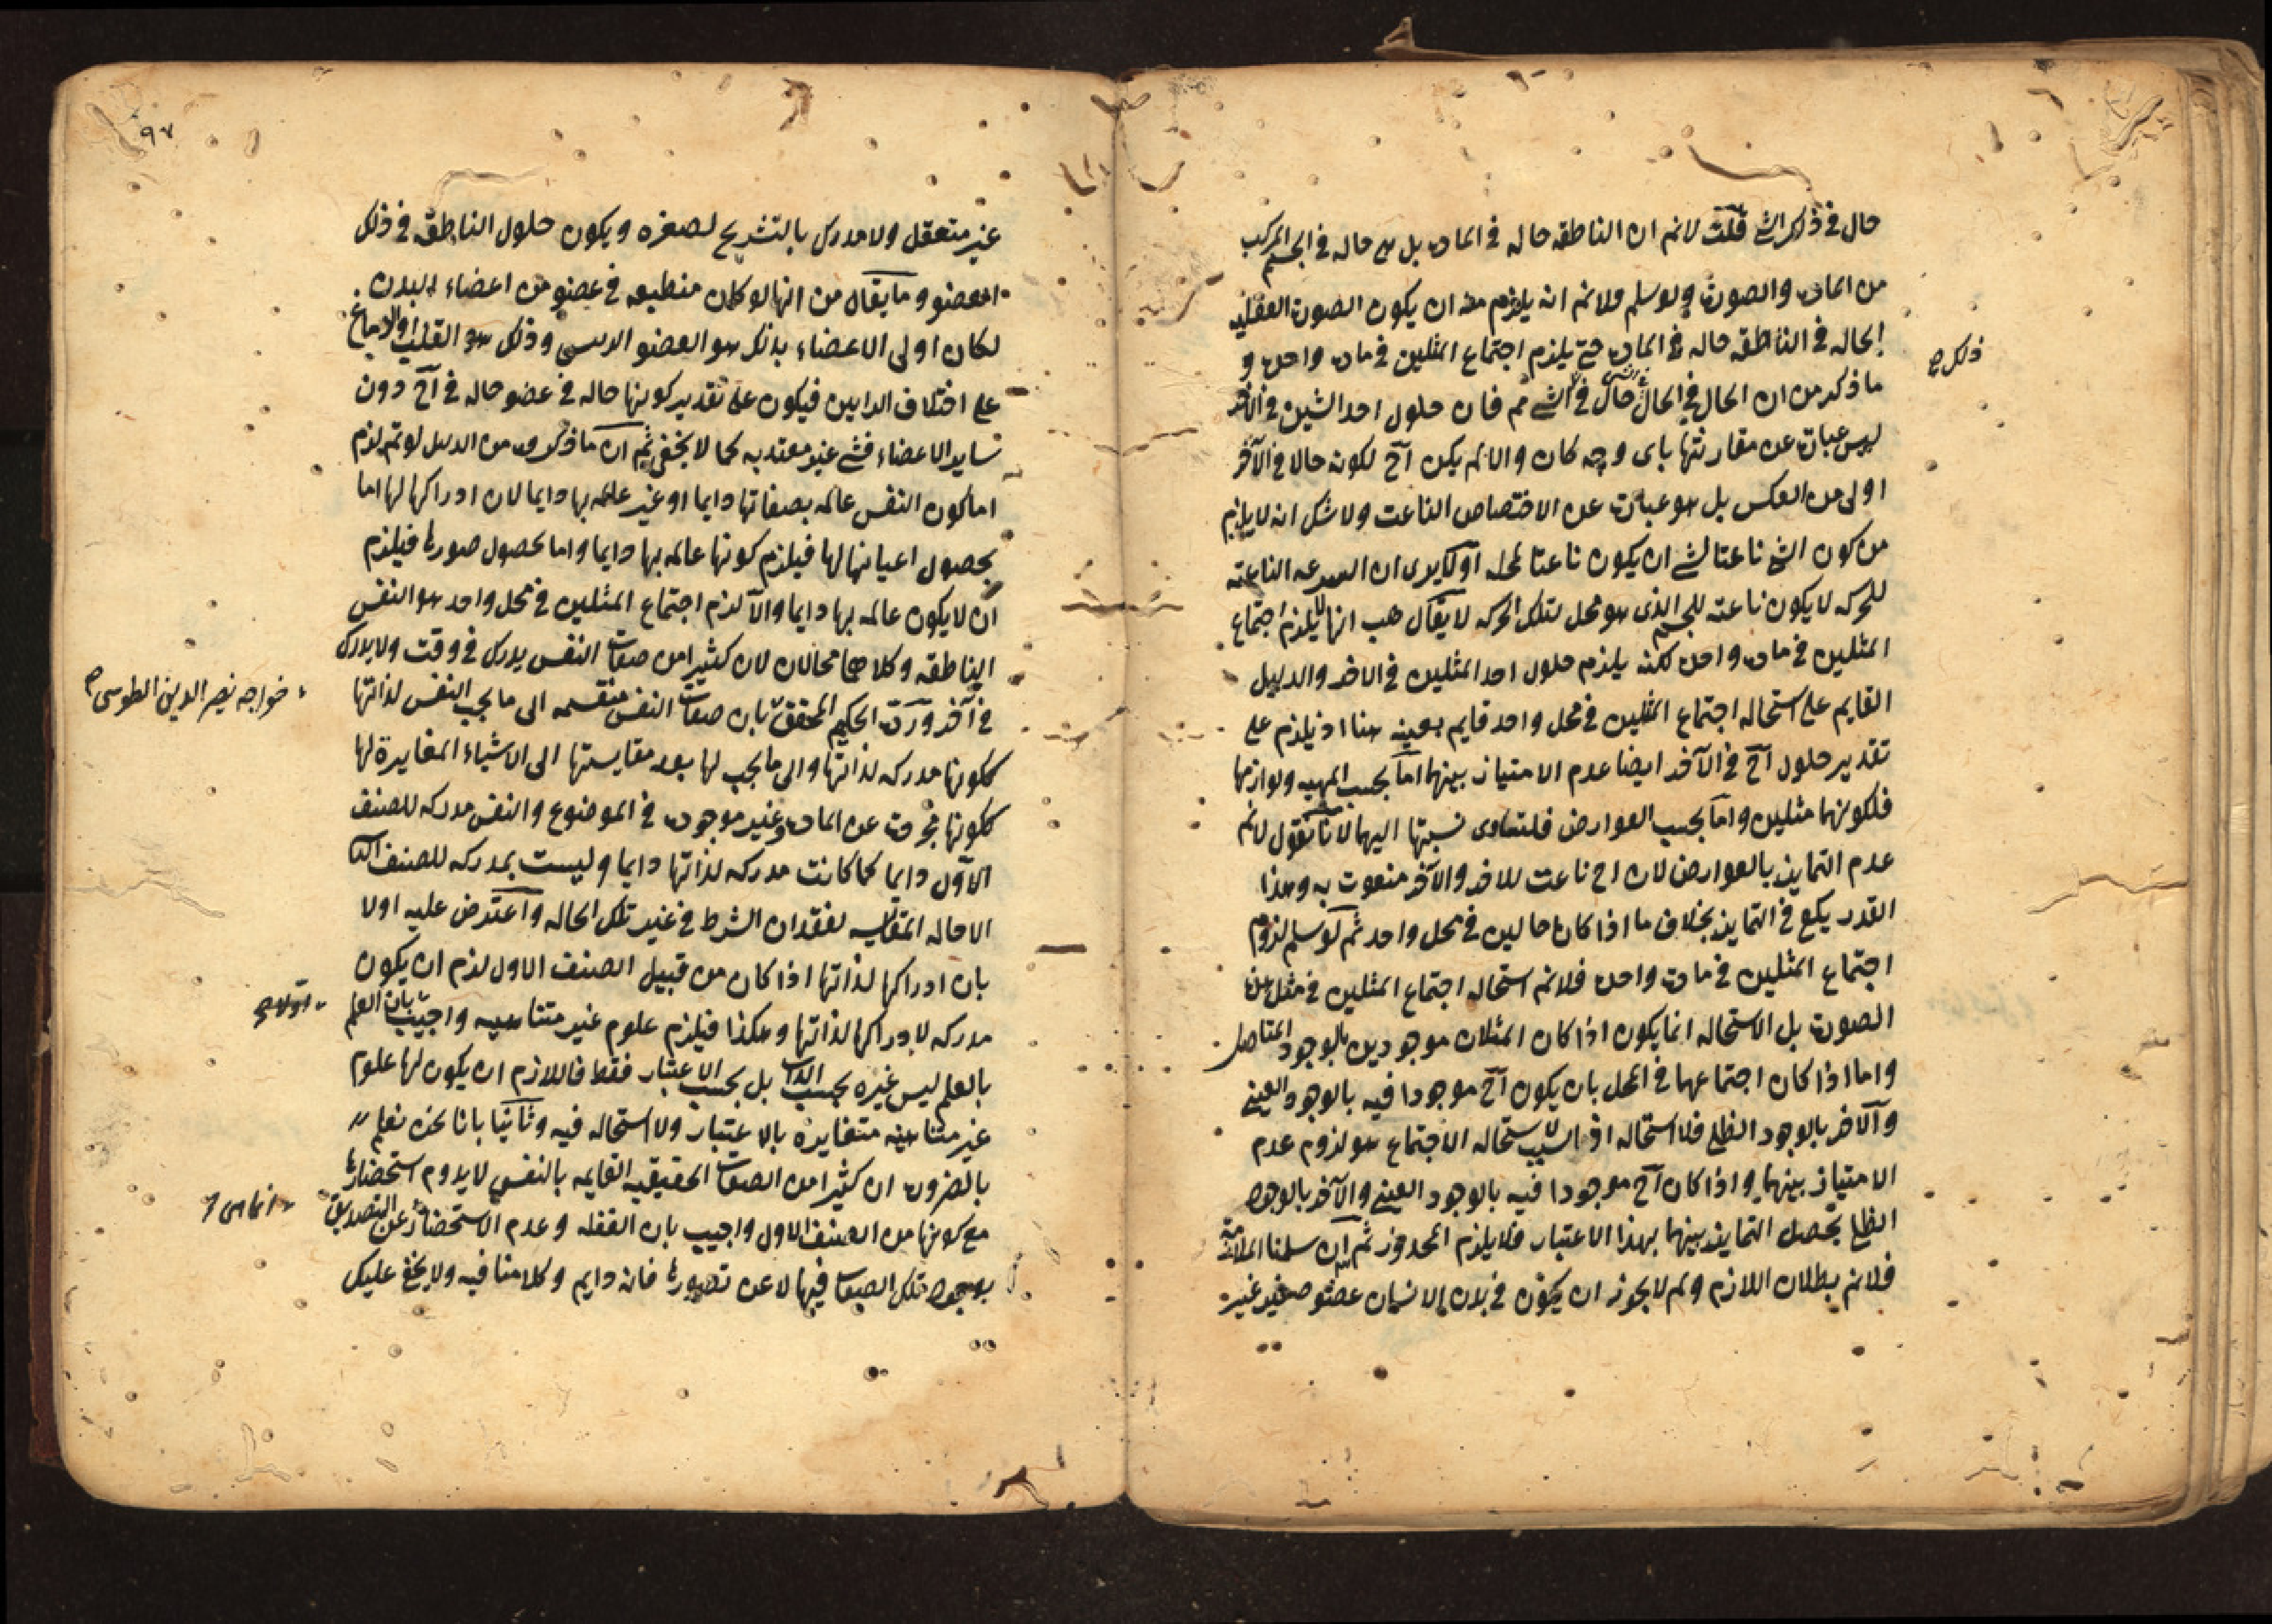 حال في ذلك الشي قلت لانم ان الناطقه حاله في الماده بل هي حاله في الجسم المركب
من الماده والصورة ولو سلم ولانم انه يلزم منه ان يكون الصورة العقليه
الحاله في الناطقه حاله في الماده حتى يلزم اجتماع المثلين في ماده واحده و
ذلك
ما ذكر من ان الحال في الحال في الشي حال في الشي مم فان حلول احد الشيئين في الآخر
ليس عبارة عن مقارنتها باى وجه كان والا لم يكن آح لكونه حالا في الآخر
اولى من العكس بل هو عبارة عن الاختصاص الناعت ولا شك انه لا يلزم
من كون الشي ناعتا لشي ان يكون ناعتا لمحله او لا يرى ان السرعه الناعته
للحركه لا يكون ناعته للجسم الذى هو محل لتلك الحركه لا يقال هب انها لا يلزم اجتماع
المثلين في ماده واحده لكنه يلزم حلول احد المثلين في الاخر والدليل
القايم على استحاله اجتماع المثلين في محل واحد قايم بعينه هنا اذ يلزم على
تقدير حلول آح في الآخر ايضا عدم الامتياز بينهما اما بحسب المهيه ولوازمها
فلكونهما مثلين واما بحسب العوارض فلتساوى نسبتها اليهما لانا نقول لانم
عدم التمايز بالعوارض لان اح ناعت للاخر والآخر منعوت به وهذا
القدر يكفي في التمايز بخلاف ما اذا كان حالين في محل واحد ثم لو سلم لزوم
اجتماع المثلين في مادة واحده فلانم استحاله اجتماع المثلين في مثل هذه
الصورة بل الاستحاله انما يكون اذا كان المثلان موجودين بالوجود المتاصل
واما اذا كان اجتماعهما في المحل بان يكون آح موجودا فيه بالوجود العيني
والآخر بالوجود الظلي فلا استحاله اذ السبب لاستحاله الاجتماع هو لزوم عدم
الامتياز بينهما واذا كان آح موجودا فيه بالوجود العيني والآخر بالوجود
الظلي يحصل التمايز بينهما بهذا الاعتبار فلا يلزم المحذور ثم ان سلمنا الملازمة
فلانم بطلان اللازم ولم لا يجوز ان يكون في بدن الانسان عضو صغير غير
٩٧
غير متعقل ولا مدرك بالتشريح لصغره ويكون حلول الناطقه في ذلك
العضو وما يقال من انها لو كان منطبعه في عضو من اعضاء البدن
لكان اولى الاعضاء بذلك هو العضو الرييسى وذلك هو القلب او الدماغ
على اختلاف الرايين فيكون على تقدير كونها حاله في عضو حاله في آح دون
ساير الاعضاء فشي غير معتد به كما لا يخفى ثم ان ما ذكروه من الدليل لو تم لزم
اما كون النفس عالمه بصفاتها دايما او غير عالمه بها دايما لان ادراكها لها اما
بحصول اعيانها لها فيلزم كونها عالمه بها دايما واما بحصول صورها فيلزم
ان لا يكون عالمه بها دايما والا لزم اجتماع المثلين في محل واحد هو النفس
الناطقه وكلاهما محالان لان كثيرا من صفات النفس يدرك في وقت ولا يدرك
في آخر ورد الحكيم المحقق بان صفات النفس منقسمه الى ما يجب النفس لذاتها
خواجه نصير الدين الطوسى
ككونها مدركه لذاتها والى ما يجب لها بعد مقايستها الى الاشياء المغايرة لها
ككونها مجردة عن الماده وغير موجوده في الموضوع والنفس مدركه للصنف
الاول دايما كما كانت مدركه لذاتها دايما وليست بمدركه للصنف الثانى
الا حاله المقايسه لفقدان الشرط في غير تلك الحاله واعترض عليه اولا
بان ادراكها لذاتها اذا كان من قبيل الصنف الاول لزم ان يكون
مدركه لادراكها لذاتها وهكذا فيلزم علوم غير متناهيه واجيب بان العلم
بالعلم ليس غيره بحسب الذات بل بحسب الاعتبار فقط فاللازم ان يكون لها علوم
غير متناهيه متغايره بالاعتبار ولا استحاله فيه وثانيا بانا نحن نعلم
بالضروره ان كثيرا من الصفات الحقيقيه القايمه بالنفس لا يدوم استحضارها
مع كونها من الصنف الاول واجيب بان الغفله وعدم الاستحضار عن التصديق
بوجود تلك الصفات فيها لا عن تصورها فانه دايم وكلا منا فيه ولا يخفى عليك